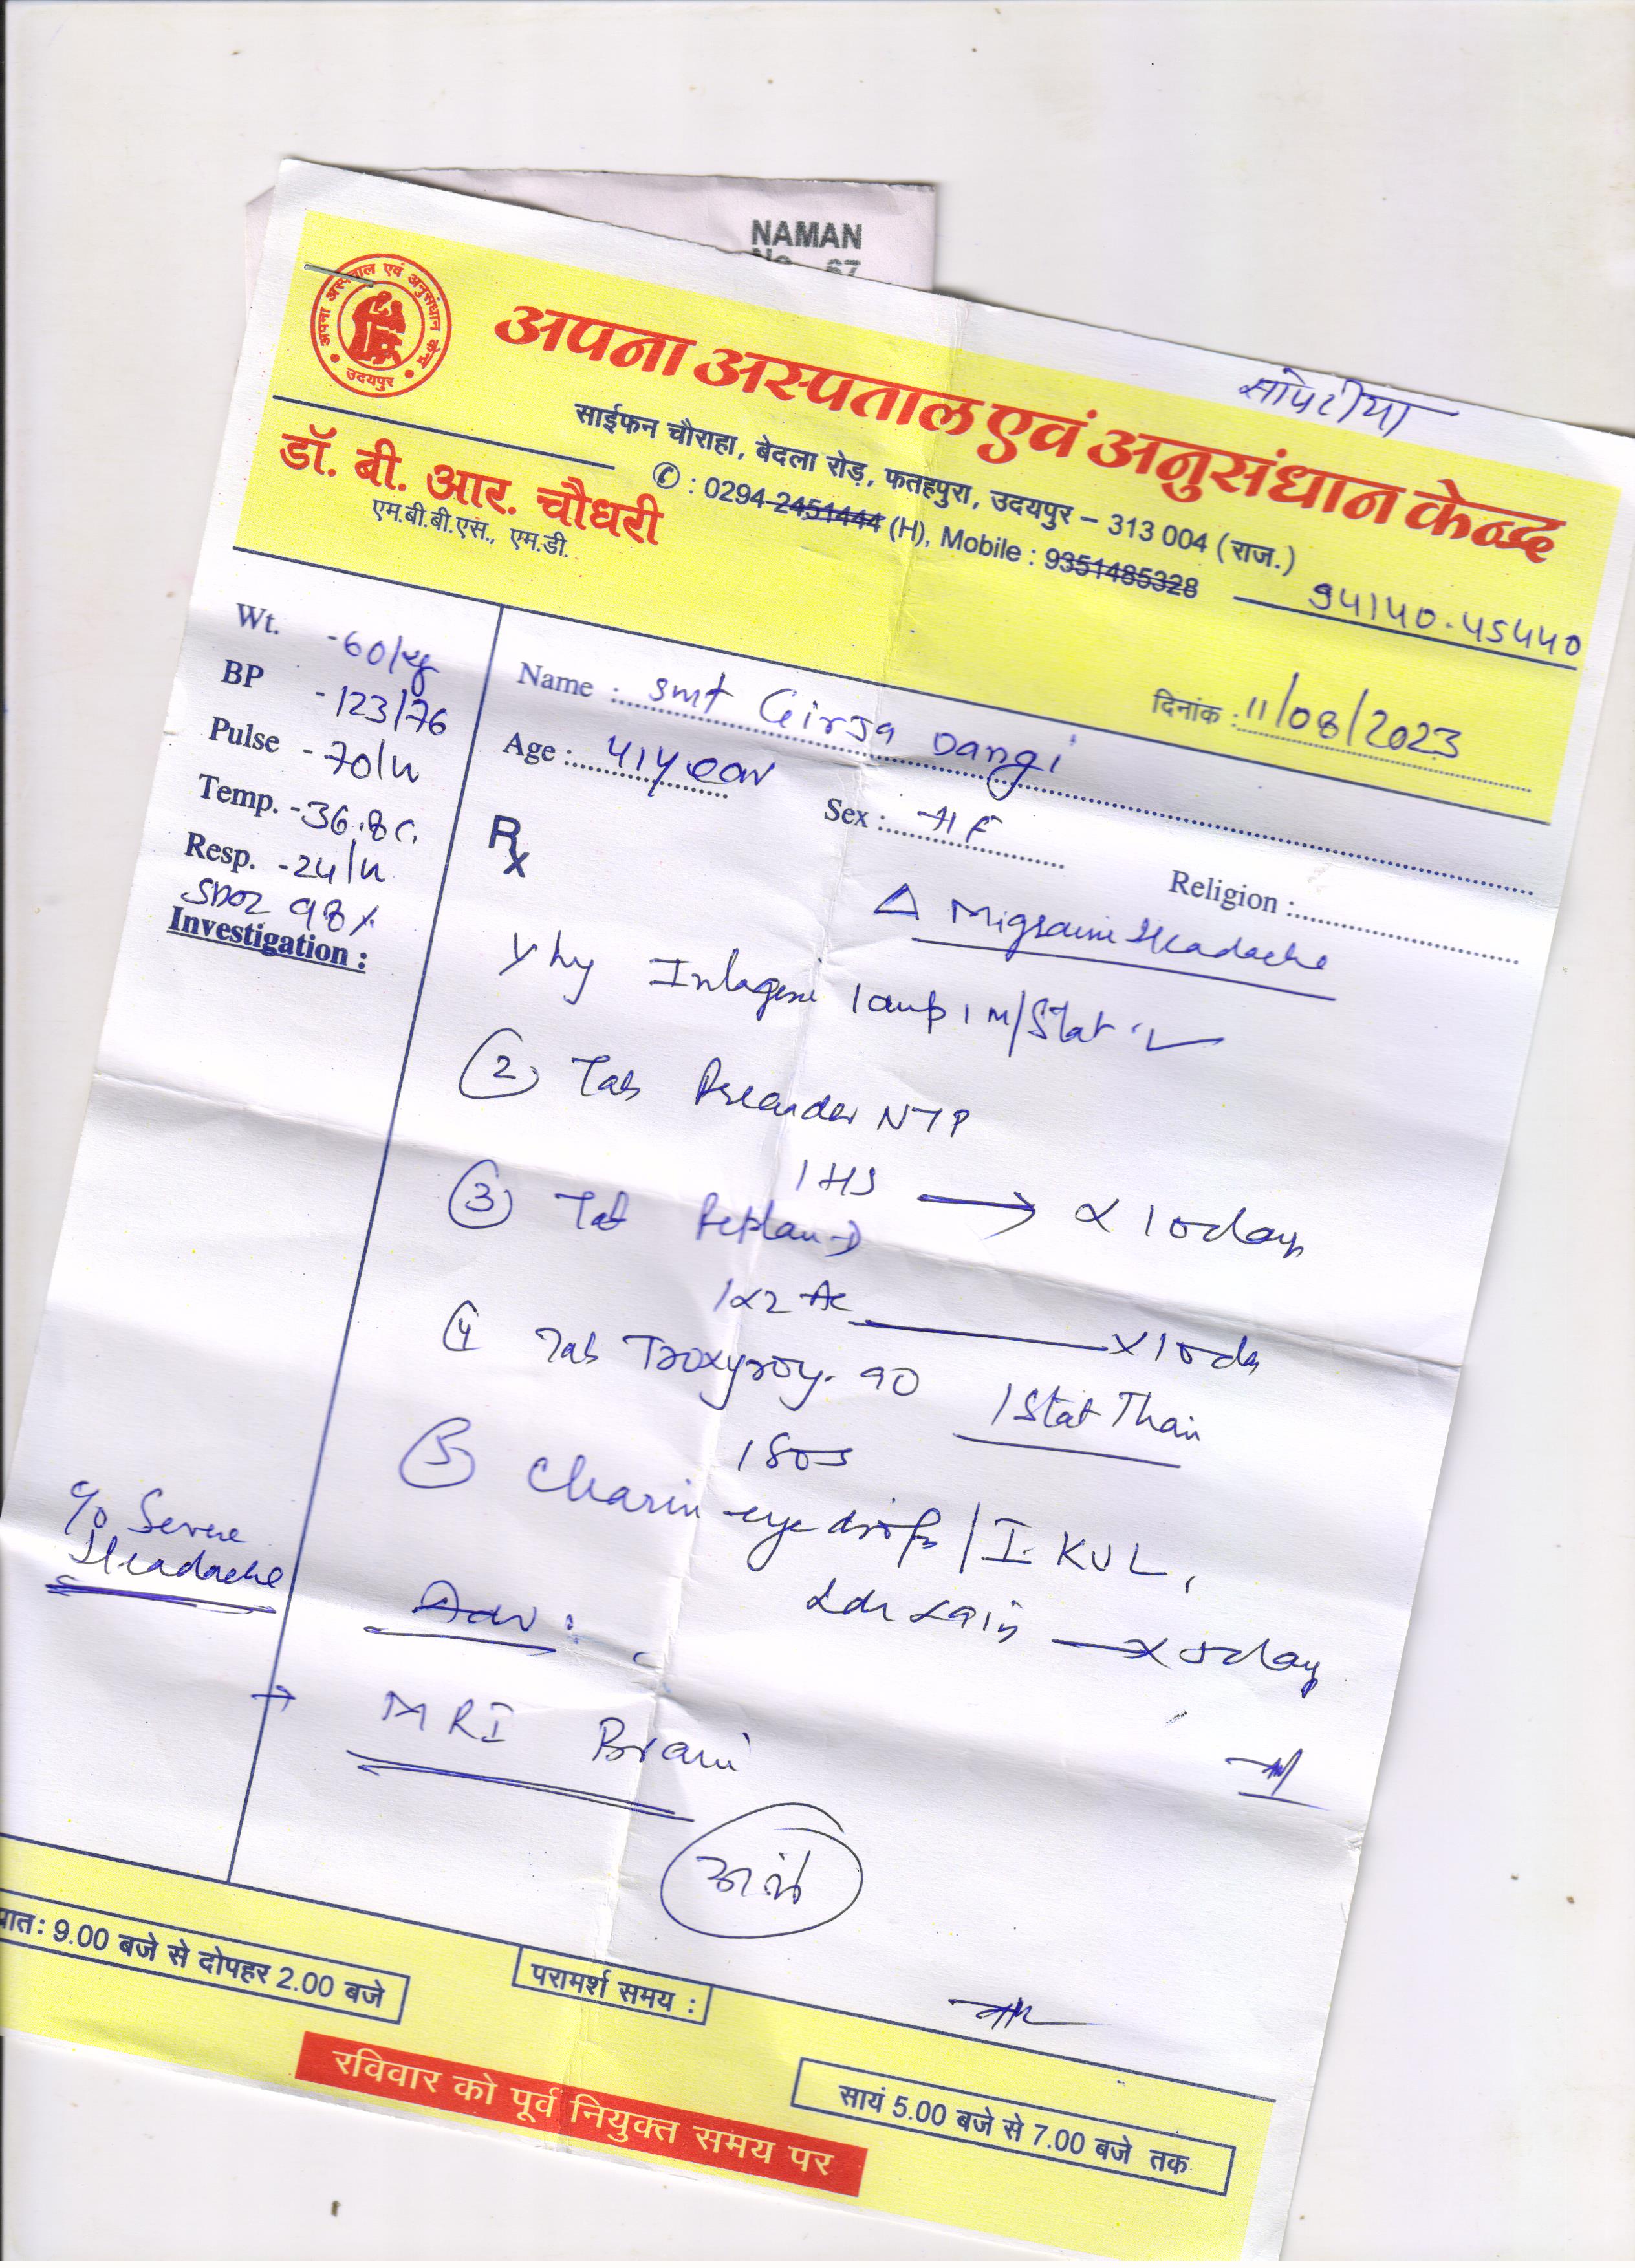 NAMAN
No 67
सापेटीया
अपना अस्पताल एवं अनुसंधान केन्द्र
उदयपुर
अपना अस्पताल एवं अनुसंधान केन्द्र
साईफन चौराहा, बेदला रोड़, फतहपुरा, उदयपुर – 313 004 (राज.)
✆ : 0294-2451444 (H), Mobile : 9351485328
94140.45440
डॉ. बी. आर. चौधरी
एम.बी.बी.एस., एम.डी.
दिनांक : 11/08/2023
Wt. -60/kg
BP - 123/76
Pulse - 70/
Temp. -36.8c
Resp. -24/
SPO2 98%
Investigation :
Name : smt Girja Dangi
Age : 41year
Sex : F
Religion :
Rx
Δ Migraine Headache
1 amp IM/Stat
② Tab NTP
1 HS → x 10 days
③ Tab D
1x2 AC x 10 d
④ Tab Troxyroy-90 1 Stat Than
1 SOS
⑤ eye drops / I-KUL,
x 5 day
c/o Severe
Headache
Adv :
→ MRI Brain
प्रात: 9.00 बजे से दोपहर 2.00 बजे
परामर्श समय :
सायं 5.00 बजे से 7.00 बजे तक
रविवार को पूर्व नियुक्त समय पर